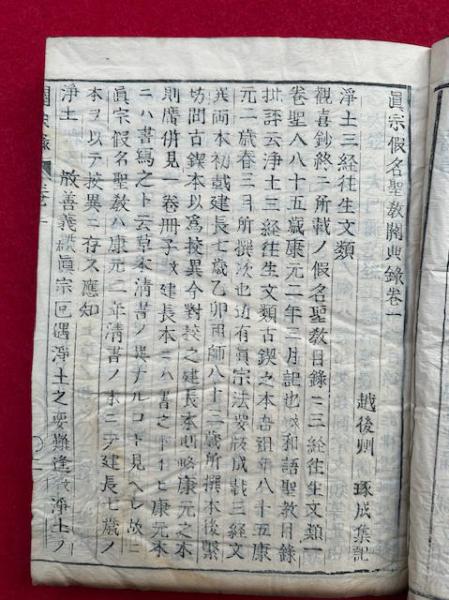 眞宗假名聖教關典錄卷一
越後州 琢成集記
淨土三経往生文類
觀喜鈔終ニ所載ノ假名聖教目錄ニ三経往生文類一
卷聖人八十五歳康元二年三月記也 和語聖教目錄
批評云淨土三経往生文類古鍥之本吾祖年八十五康
元二歳春三月所撰次也近有眞宗法要版成載三経文
異兩本初載建長七歳乙卯祖師八十三歳所撰本後繋
坊間古鍥本以爲挍異今對挍之建長本則略康元之本
則廣併見一卷冊子 建長本ニハ書之トイヒ康元本
ニハ書寫之ト云草本清書ノ異ナルコト見ヘシ故ニ
眞宗假名聖教ハ康元二年清書ノ本ニテ建長七歳ノ
本ヲ以テ挍異ニ存ス應知
淨土 散善義 眞宗叵遇淨土之要難逢 淨土ノ